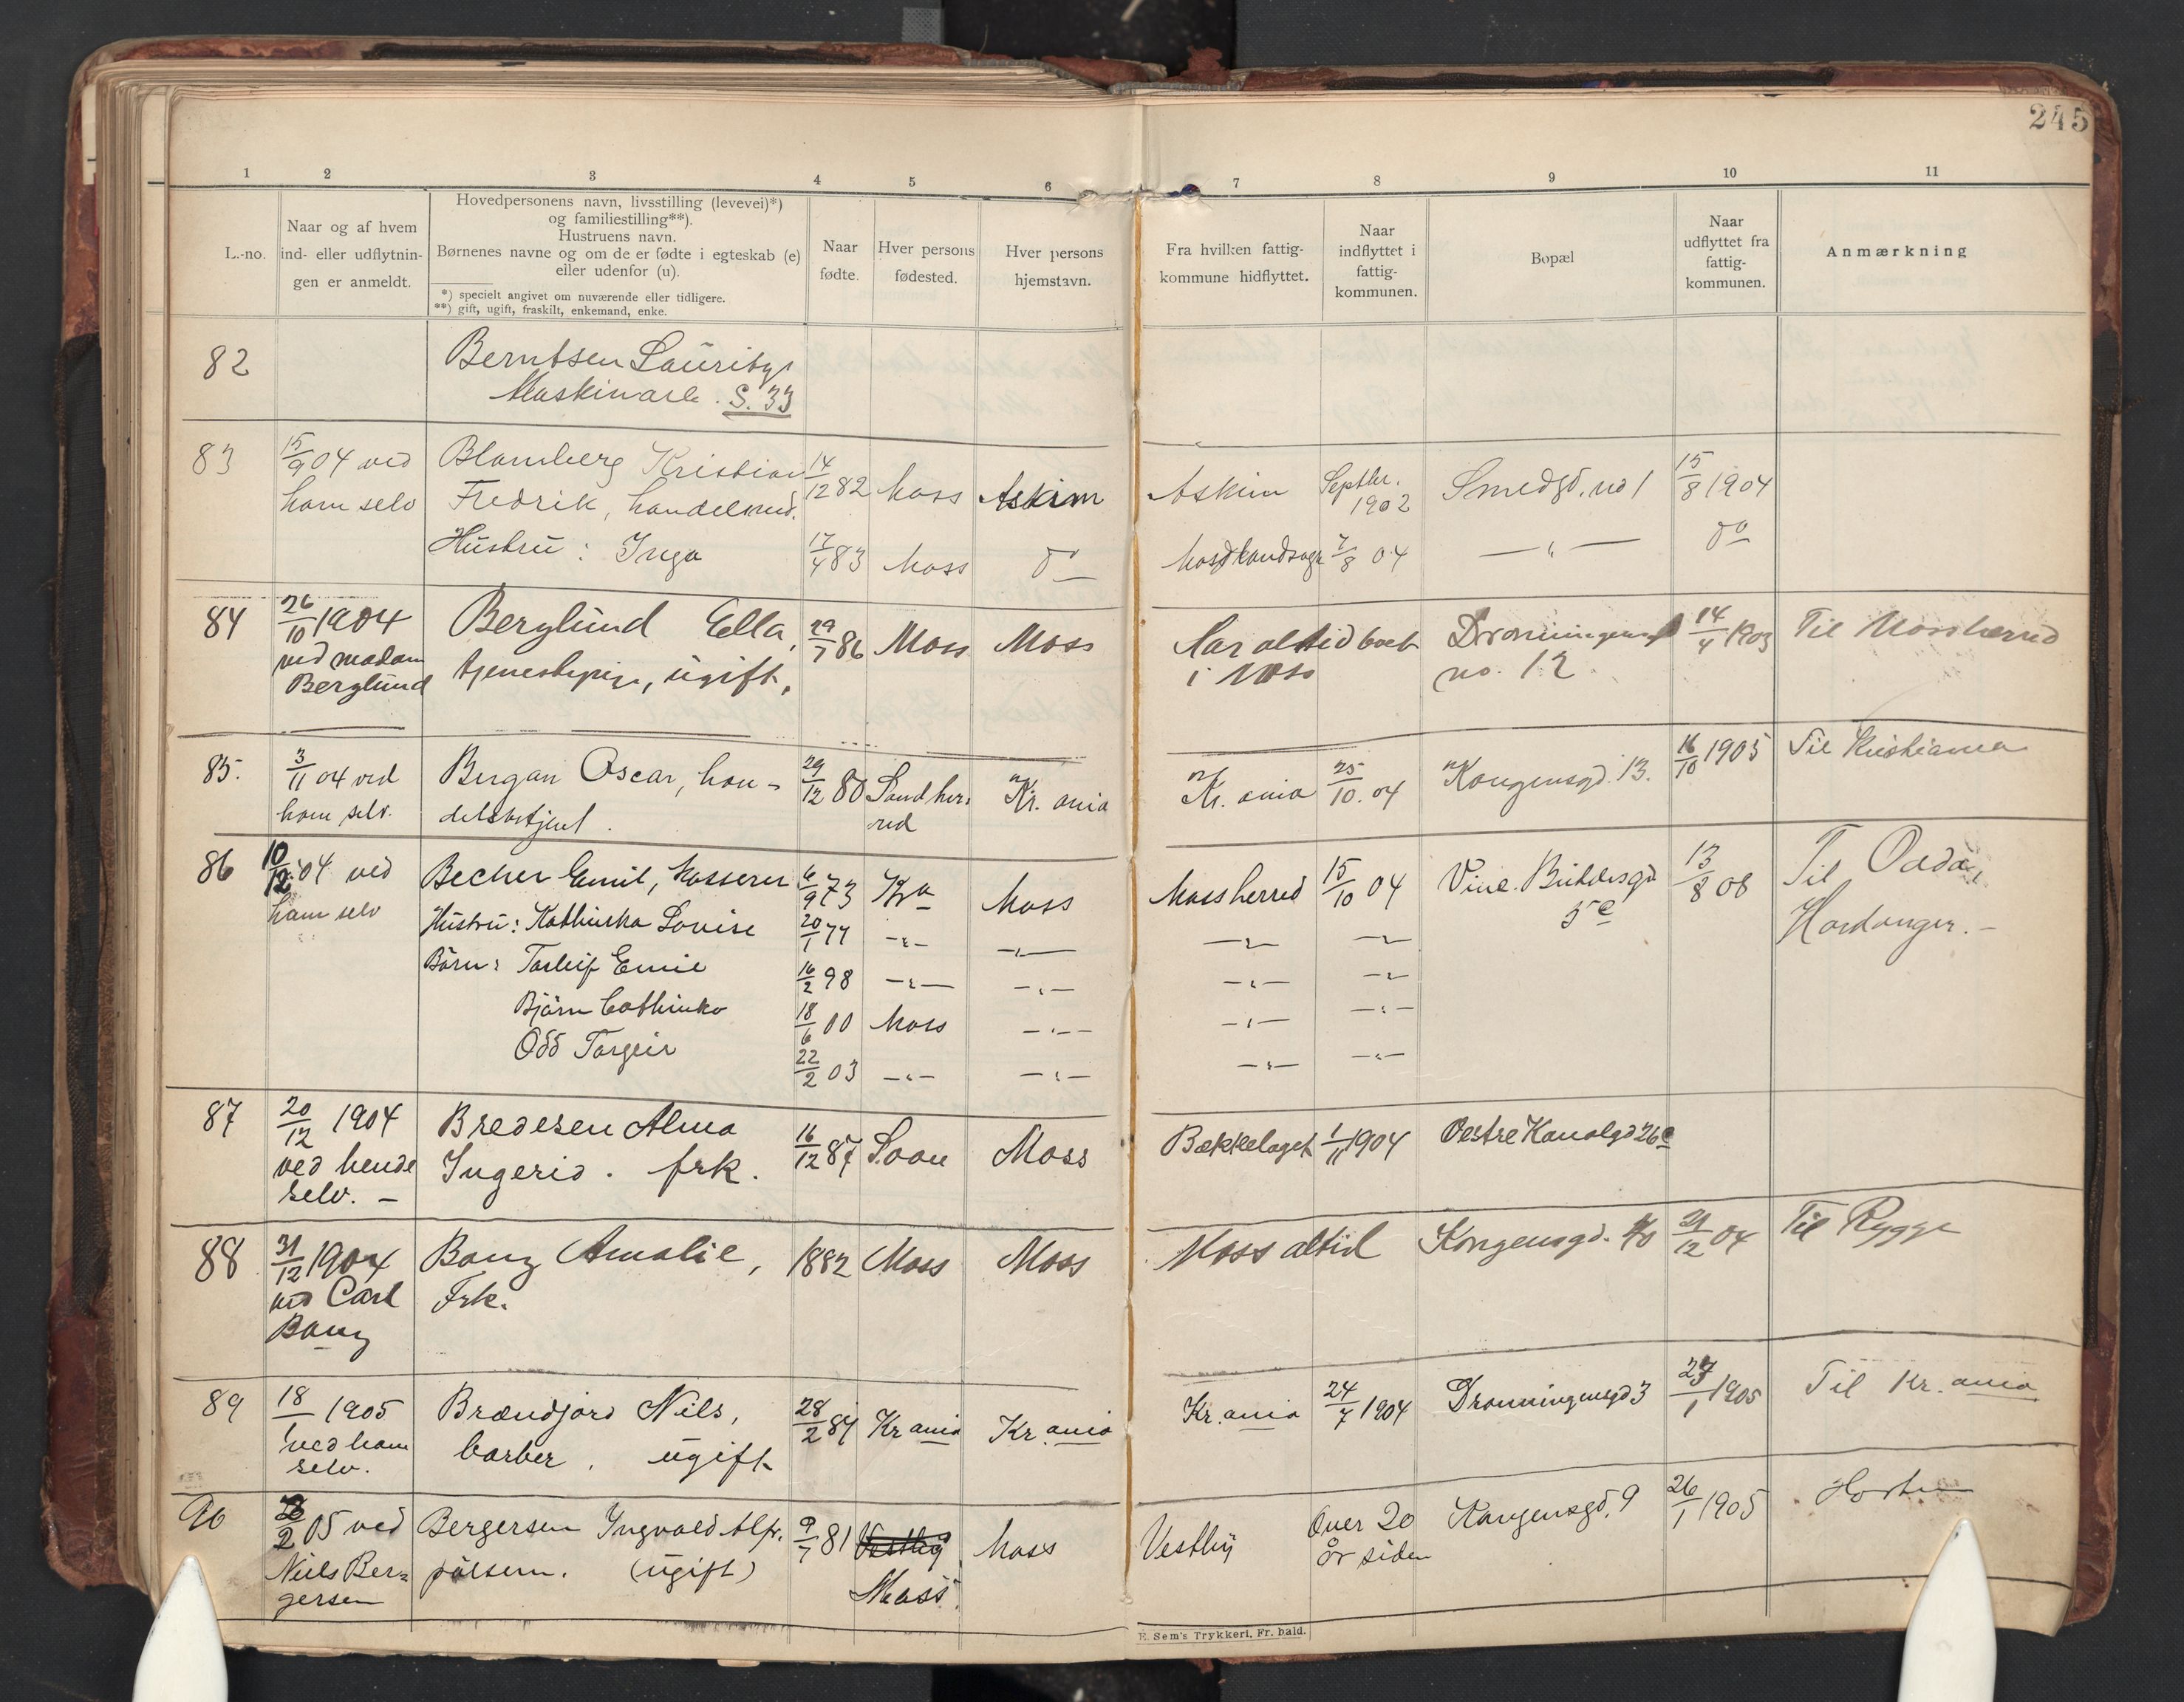 245
1 2 3 4 5 6 7 8 9 10 11
L.-no.
Naar og af hvem
ind- eller udflytnin-
gen er anmeldt.
Hovedpersonens navn, livsstilling (levevei)*)
og familiestilling**).
Hustruens navn.
Børnenes navne og om de er fødte i egteskab (e)
eller udenfor (u).
*) specielt angivet om nuværende eller tidligere.
**) gift, ugift, fraskilt, enkemand, enke.
Naar
fødte.
Hver persons
fødested.
Hver persons
hjemstavn.
Fra hvilken fattig-
kommune hidflyttet.
Naar
indflyttet i
fattig-
kommunen.
Bopæl
Naar
udflyttet fra
fattig-
kommunen.
Anmærkning
82 Berntsen Lauritz
Maskinarb. S. 33
83 15/9 04 ved Blomberg Kristian 14/12 82 Moss Askim Askim Septbr. Smedgd. no 1 15/8 1904
ham selv Fredrik, handelsmd. 1902
Hustru: Inga 17/4 83 Moss do Moss landsogn 7/8 04 — „ — do
84 26/10 1904 Berglund Ella, 29/7 86 Moss Moss Har altid boet Dronningensgd 14/4 1903 Til Moss herred
ved madam tjenestepige, ugift, i Moss no. 12
Berglund
85. 3/11 04 ved Bergan Oscar, han- 29/12 80 Sandher- Kr.ania Kr.ania 25/10.04 Kongensgd. 13. 16/10 1905 Til Kristiania
ham selv. delsbetjent. red
86 10/12 04 ved Becher Emil, kasserer 6/9 73 Kra Moss Mossherred 15/10 04 Vinc. Buddesgd 13/8 06 Til Odda,
ham selv Hustru: Kathinka Lovise 20/1 77 — „ — — „ — — „ — — „ — 5 c Hardanger. –
Børn: Torleif Emil 16/2 98 — „ — — „ — — „ — — „ —
Bjørn Cathinko 18/6 00 Moss — „ — — „ — — „ —
Odd Torgeir 22/2 03 — „ — — „ — — „ — — „ —
87 20/12 1904 Bredesen Alma 16/12 87 Soon Moss Bækkelaget 1/11 1904 Vestre Kanalgd 26 c
ved hende Ingerid. frk.
selv. –
88 31/12 1904 Bang Amalie, 1882 Moss Moss Moss altid Kongensgd. 40 31/12 04 Til Rygge
ved Carl Frk.
Bang
89 18/1 1905 Brændjord Nils, 28/2 87 Kr ania Kr. ania Kr. ania 24/7 1904 Dronningensgd 3 27/1 1905 Til Kr. ania
ved ham barber, ugift
selv.
90 2/2 05 ved Bergersen Ingvald Alfr. 9/7 81 Vestby Moss Vestby Over 20 Kongensgd. 9 26/1 1905 Horten
Niels Ber- pølsem. (ugift) Moss. år siden
gersen
E. Sem's Trykkeri, Fr. hald.